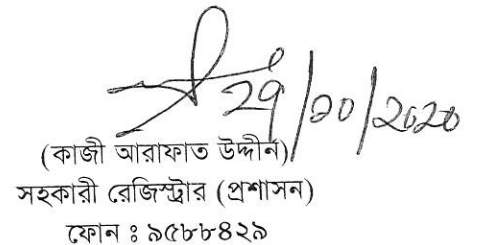 ২৭/১০/২০২০
(কাজী আরাফাত উদ্দীন)
সহকারী রেজিস্ট্রার (প্রশাসন)
ফোন ঃ ৯৫৮৮৪২৯